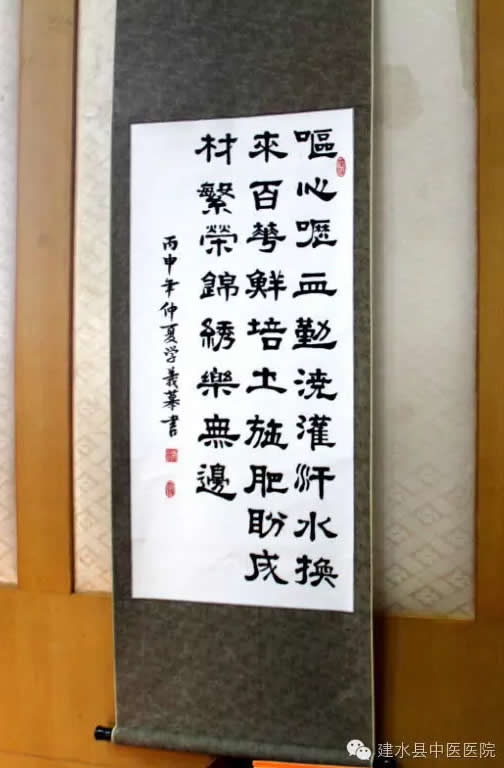 呕心嚦血勤浇灌汗水換
來百花鮮培土施肥盼成
材繁荣錦綉樂無邊
丙申年仲夏学義摹書
建水县中医医院